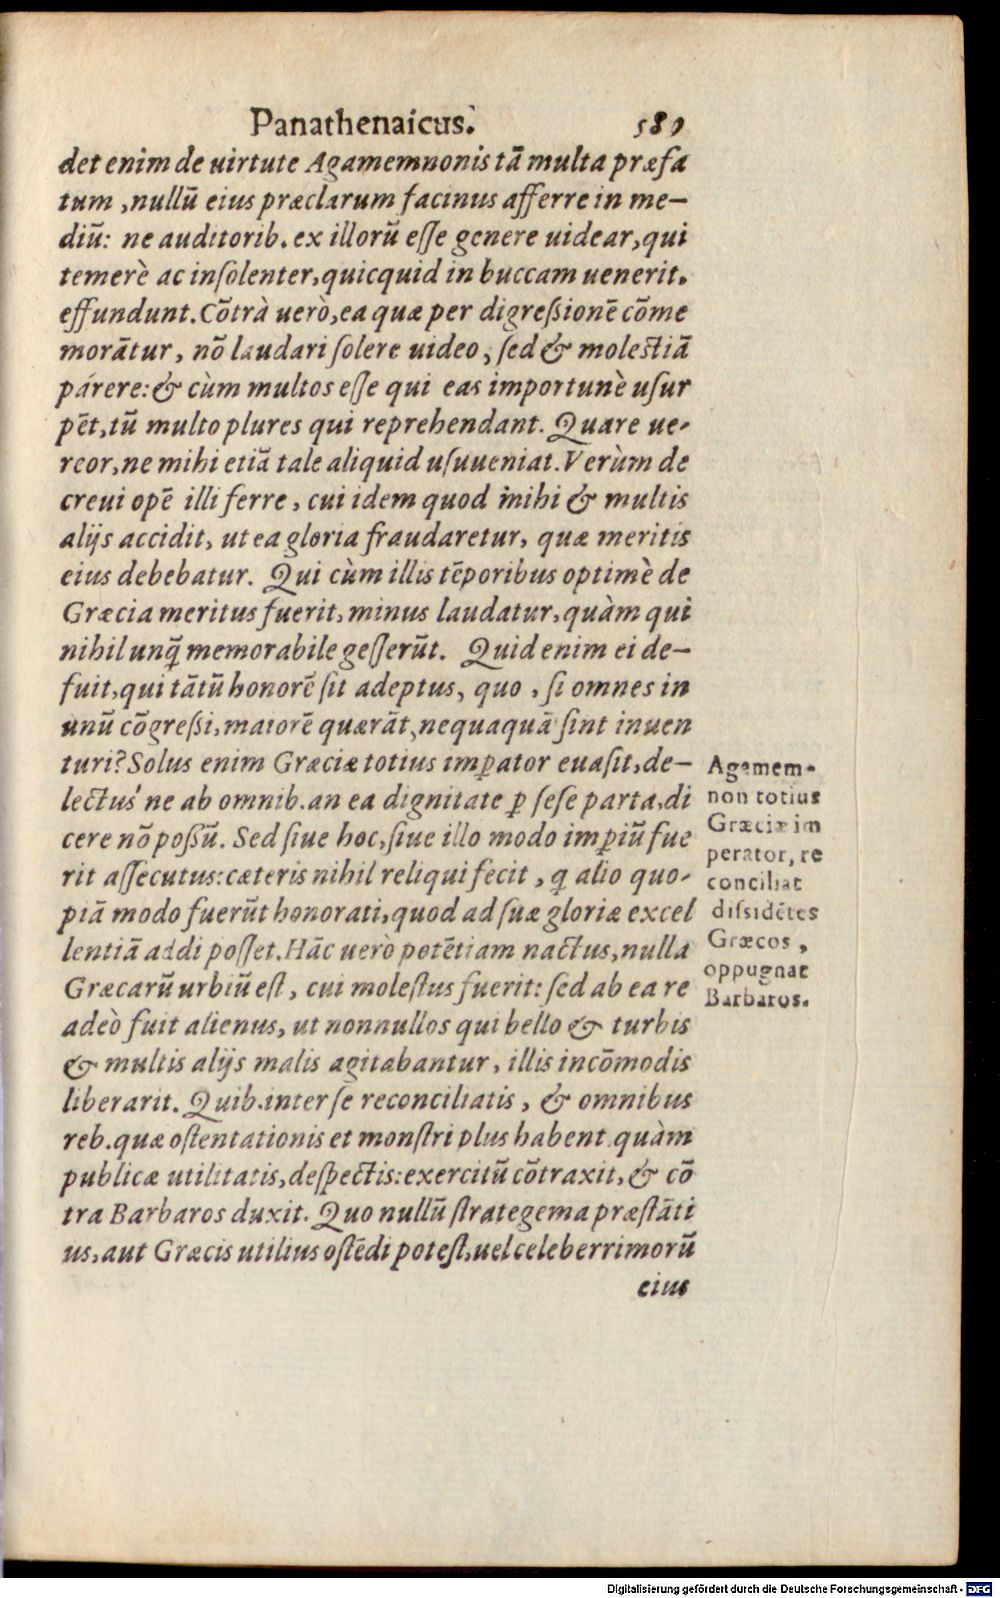 Panathenaicus. 589
det enim de uirtute Agamemnonis tā multa præfa
tum, nullū eius præclarum facinus afferre in me-
diū: ne auditorib. ex illorū eſſe genere uidear, qui
temerè ac inſolenter, quicquid in buccam uenerit,
effundunt. Cōtrà uerò, ea quæ per digreſsionē cōme
morātur, nō laudari ſolere uideo, ſed & moleſtiā
párere: & cùm multos eſſe qui eas importunè uſur
pēt, tū multo plures qui reprehendant. Quare ue-
reor, ne mihi etiā tale aliquid uſuueniat. Verùm de
creui opē illi ferre, cui idem quod mihi & multis
alijs accidit, ut ea gloria fraudaretur, quæ meritis
eius debebatur. Qui cùm illis tēporibus optimè de
Græcia meritus fuerit, minus laudatur, quàm qui
nihil unq̃ memorabile geſſerūt. Quid enim ei de-
fuit, qui tātū honorē ſit adeptus, quo, ſi omnes in
unū cōgreſsi, maiorē quærāt, nequaquā ſint inuen
turi? Solus enim Græciæ totius imꝑator euaſit, de-
lectus'ne ab omnib. an ea dignitate ꝑ ſeſe parta, di
cere nō poſſū. Sed ſiue hoc, ſiue illo modo imꝑiū fue
rit aſſecutus: cæteris nihil reliqui fecit, q̃ alio quo-
piā modo fuerūt honorati, quod ad ſuæ gloriæ excel
lentiā addi poſſet. Hāc uerò potētiam nactus, nulla
Græcarū urbiū eſt, cui moleſtus fuerit: ſed ab ea re
adeò fuit alienus, ut nonnullos qui bello & turbis
& multis alijs malis agitabantur, illis incōmodis
liberarit. Quib. inter ſe reconciliatis, & omnibus
reb. quæ oſtentationis et monſtri plus habent quàm
publicæ utilitatis, deſpectis: exercitū cōtraxit, & cō
tra Barbaros duxit. Quo nullū ſtrategema præſtāti
us, aut Græcis utilius oſtēdi poteſt, uel celeberrimorū
eius
Agamem-
non totius
Græciæ im
perator, re
conciliat
diſsidētes
Græcos,
oppugnat
Barbaros.
Digitalisierung gefördert durch die Deutsche Forschungsgemeinschaft - DFG